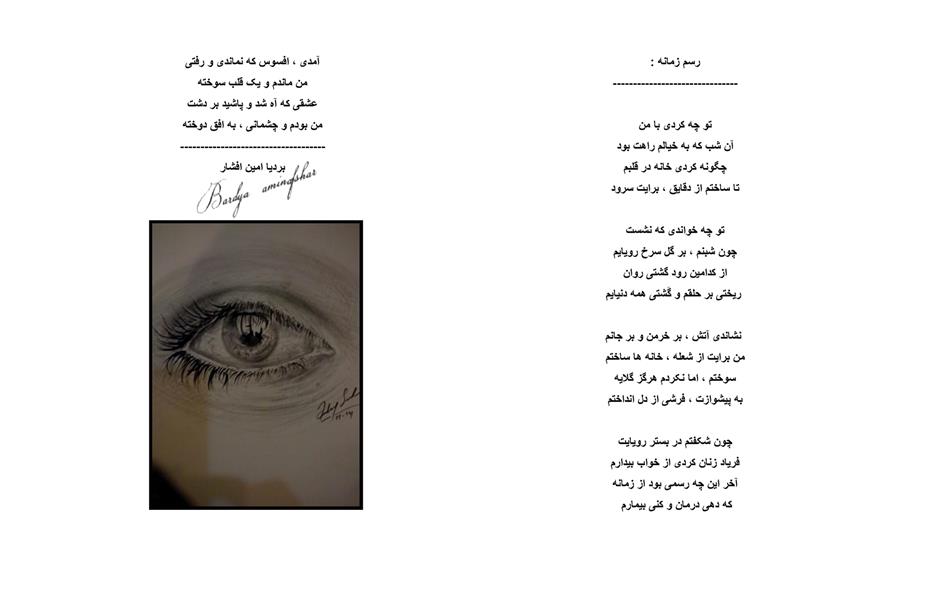 رسم زمانه :
-------------------------------
تو چه کردی با من
آن شب که به خیالم راهت بود
چگونه کردی خانه در قلبم
تا ساختم از دقایق ، برایت سرود
تو چه خواندی که نشست
چون شبنم ، بر گل سرخ رویایم
از کدامین رود گشتی روان
ریختی بر حلقم و گشتی همه دنیایم
نشاندی آتش ، بر خرمن و بر جانم
من برایت از شعله ، خانه ها ساختم
سوختم ، اما نکردم هرگز گلایه
به پیشوازت ، فرشی از دل انداختم
چون شکفتم در بستر رویایت
فریاد زنان کردی از خواب بیدارم
آخر این چه رسمی بود از زمانه
که دهی درمان و کنی بیمارم
آمدی ، افسوس که نماندی و رفتی
من ماندم و یک قلب سوخته
عشقی که آه شد و پاشید بر دشت
من بودم و چشمانی ، به افق دوخته
------------------------------------
بردیا امین افشار
Bardya aminafshar